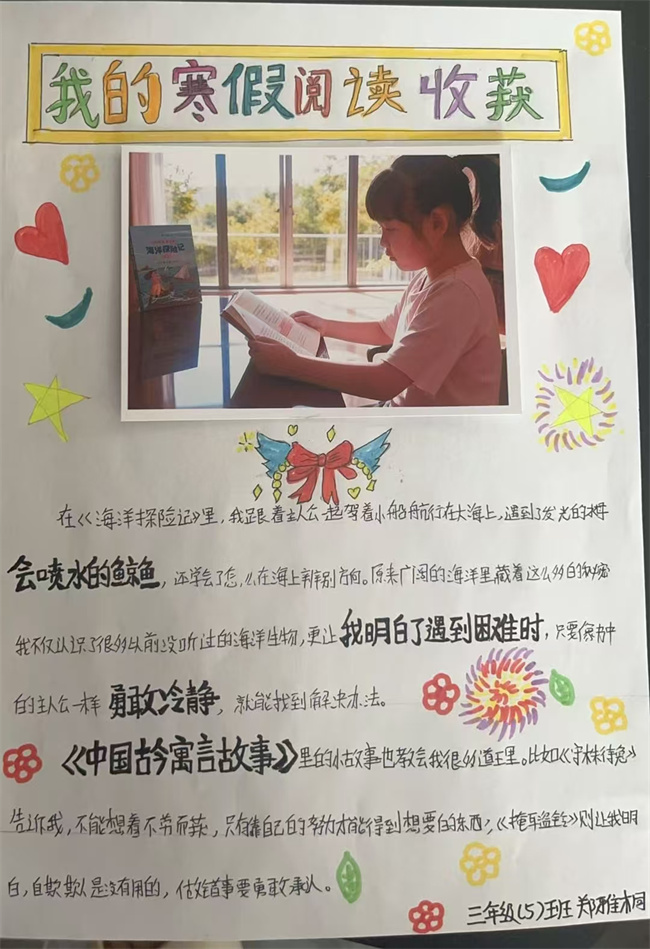 我的寒假阅读收获
在《海洋探险记》里，我跟着主人公一起驾着小船航行在大海上，遇到了发光的
会喷水的鲸鱼，还学会了怎么在海上辨别方向。原来广阔的海洋里藏着这么多的秘密
我不仅认识了很多以前没听过的海洋生物，更让我明白了遇到困难时，只要像书中
的主人公一样勇敢冷静，就能找到解决办法。
《中国古今寓言故事》里的小故事也教会我很多道理。比如《守株待兔》
告诉我，不能想着不劳而获，只有靠自己的努力才能得到想要的东西；《掩耳盗铃》则让我明
白，自欺欺人是没有用的，做错事要勇敢承认。
三年级(5)班 郑雅桐